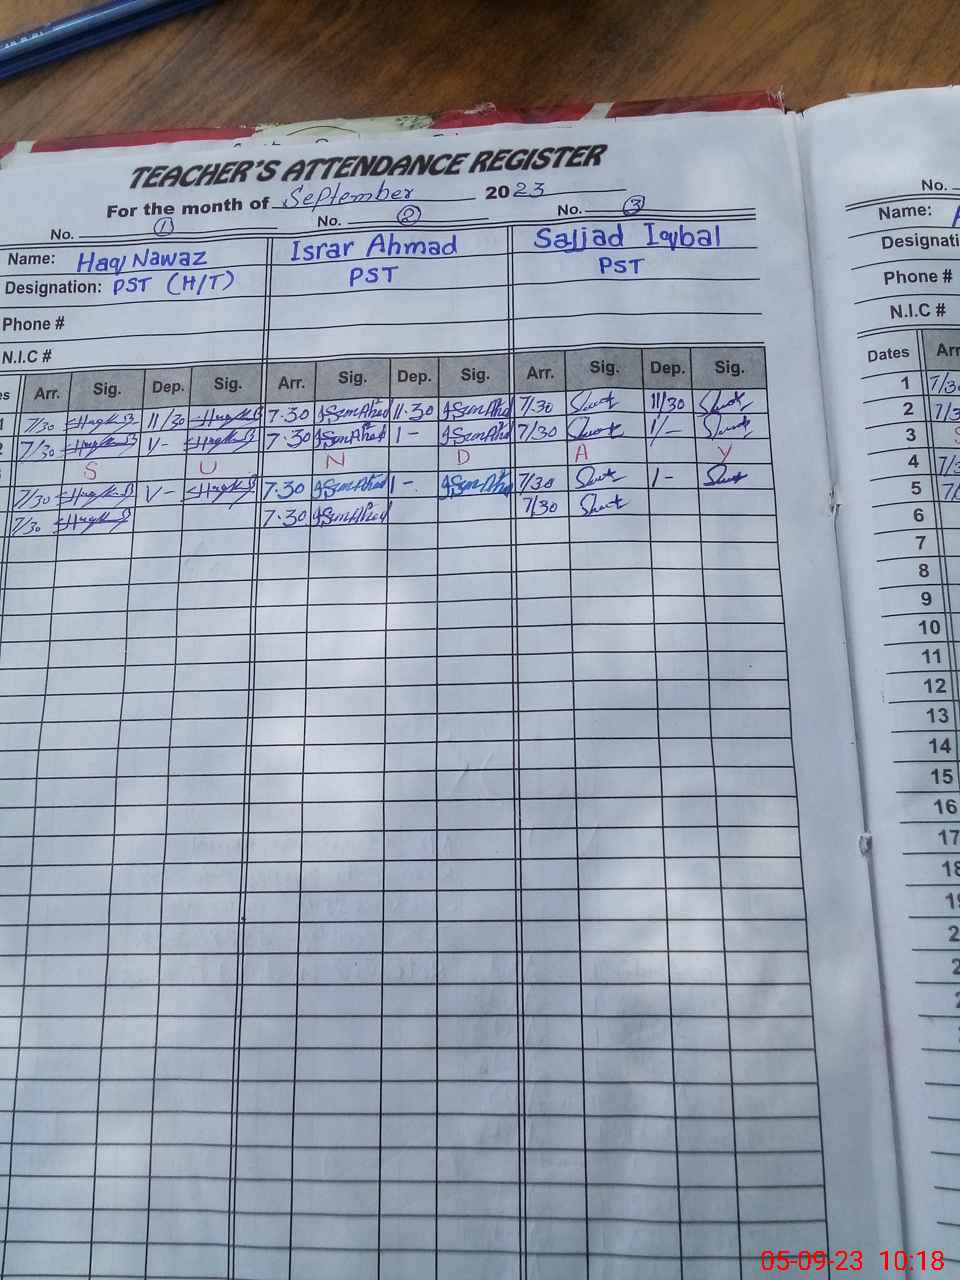 TEACHER'S ATTENDANCE REGISTER
For the month of September 2023
No. 1 No. 2 No. 3
Name: Haq Nawaz Israr Ahmad Sajjad Iqbal
Designation: PST (H/T) PST PST
Phone #
N.I.C #
es Arr. Sig. Dep. Sig. Arr. Sig. Dep. Sig. Arr. Sig. Dep. Sig.
1 7/30 11/30 7.30 11.30 7/30 11/30
2 7/30 1/- 7.30 1- 7/30 1/-
S U N D A Y
7/30 1/- 7.30 1- 7/30 1-
7/30 7.30 7/30
No.
Name:
Designati
Phone #
N.I.C #
Dates Arr
1 7/30
2 7/3
3 S
4 7/3
5 7/
6
7
8
9
10
11
12
13
14
15
16
17
18
19
2
2
2
05-09-23 10:18